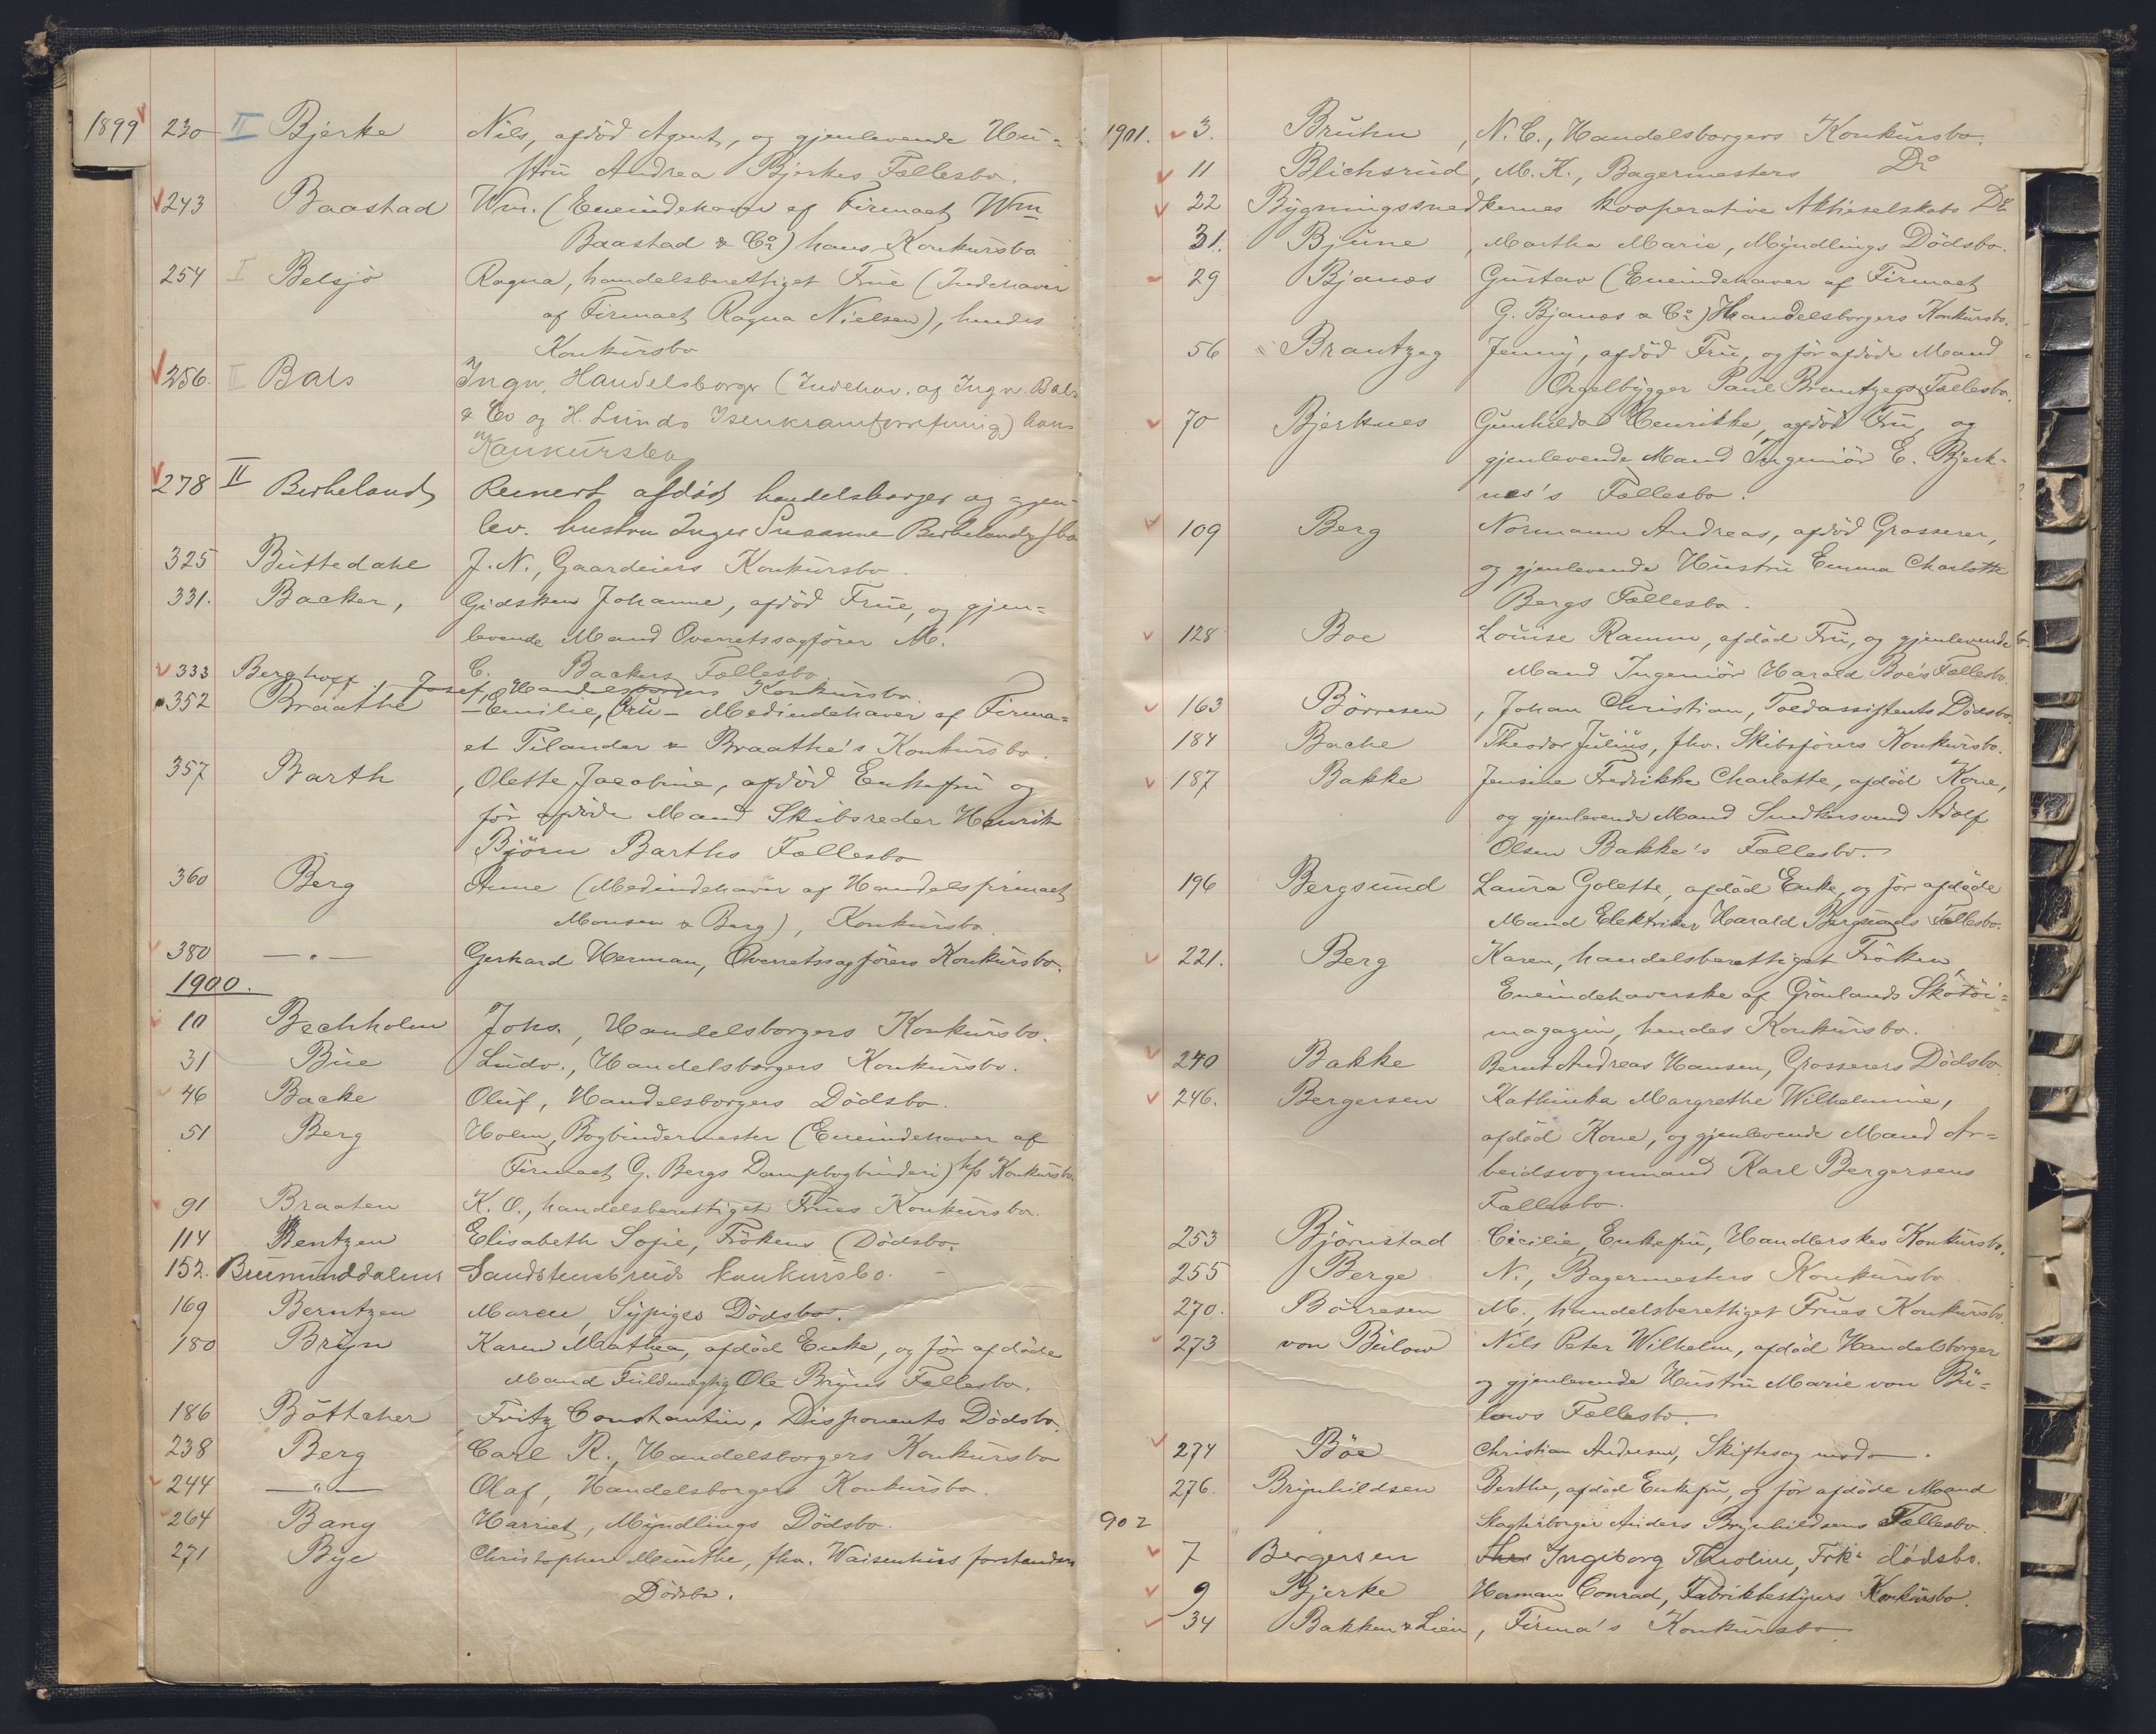 1899 230 II Bjerke Nils, afdöd Agent, og gjenlevende Hu-
stru Andrea Bjerkes Fællesbo.
243 Baastad Wm. (Eneindehaver af Firmaet Wm
Baastad & Co) hans Konkursbo
254 I Belsjö Ragna, handelsberettiget Frue (Indehaver
af Firmaet Ragna Nielsen), hendes
Konkursbo
256. II Bals Ingv. Handelsborger (Indehav. af Ingv. Bals
& Co og H. Lunds Isenkramforretning) hans
Konkursbo
278 II Birkeland Reinert afdöd handelsborger og gjen-
lev. hustru Inger Susanne Birkelands fbo
325 Buttedahl J. N., Gaardeiers Konkursbo.
331. Backer, Gidsken Johanne, afdöd Frue, og gjen-
levende Mand Overretssagförer M.
C. Backers Fællesbo
333 Berghoff, Josef, Handelsborgers Konkursbo
352 Braathe Emilie, Fru - Medindehaver af Firma-
et Tilander & Braathe's Konkursbo.
357 Barth, Olette Jacobine, afdöd Enkefru og
för afdöde Mand Skibsreder Henrik
Björn Barths Fællesbo
360 Berg Anne (Medindehaver af Handelsfirmaet
Monsen & Berg), Konkursbo.
380 — " — Gerhard Herman, Overretssagförers Konkursbo.
1900.
10 Bechholm Johs., Handelsborgers Konkursbo.
31 Bue Ludv., Handelsborgers Konkursbo.
46 Backe Oluf, Handelsborgers Dödsbo.
51 Berg Holm, Bogbindermester (Eneindehaver af
Firmaet G. Bergs Dampbogbinderi) hs Konkursbo.
91 Braaten K. O., handelsberettiget Frues Konkursbo.
114 Bentzen Elisabeth Sofie, Frökens Dödsbo.
152. Brumunddalens Sandstensbruds konkursbo.
169 Berntzen Maren, Sypiges Dödsbo.
180 Bryn Karen Mathea, afdöd Enke, og för afdöde
Mand Fuldmægtig Ole Bryns Fællesbo.
186 Böttcher, Fritz Constantin, Disponents Dödsbo.
238 Berg Carl R., Handelsborgers Konkursbo
244 — " — Olaf, Handelsborgers Konkursbo.
264 Bang Harriet, Myndlings Dödsbo.
271 Bye Christopher Munthe, fhv. Waisenhus forstanders
Dödsbo.
1901. 3. Bruhn, N. C., Handelsborgers Konkursbo.
11 Blichsrud, M. K., Bagermesters Do
22 Bygningssnedkernes kooperative Aktieselskabs Do
31. Bjune, Martha Marie, Myndlings Dödsbo.
29 Bjanes Gustav (Eneindehaver af Firmaet
G. Bjanes & Co) Handelsborgers Konkursbo.
56 Brantzeg Jenny, afdöd Fru, og för afdöde Mand
Orgelbygger Paul Brantzegs Fællesbo.
70 Bjerknes Gunhilda Henrikke, afdöd Fru, og
gjenlevende Mand Ingeniör E. Bjerk-
nes's Fællesbo.
109 Berg Normann Andreas, afdöd Grosserer,
og gjenlevende Hustru Emma Charlotte
Bergs Fællesbo.
128 Boe Louise Ramm, afdöd Fru, og gjenlevende
Mand Ingeniör Harald Boe's Fællesbo.
163 Börresen, Johan Christian, Toldassistents Dödsbo.
184 Bache Theodor Julius, fhv. Skibsförers Konkursbo.
187 Bakke Jensine Fredrikke Charlotte, afdöd Kone,
og gjenlevende Mand Snedkersvend Adolf
Olsen Bakke's Fællesbo.
196 Bergsund Laura Golette, afdöd Enke, og för afdöde
Mand Elektriker Harald Bergsunds Fællesbo.
221. Berg Karen, handelsberettiget Fröken,
Eneindehaverske af Grönlands Skotöi-
magazin, hendes Konkursbo.
240 Bakke Bernt Andreas Hansen, Grosserers Dödsbo
246. Bergersen Kathinka Margrethe Wilhelmine,
afdöd Kone, og gjenlevende Mand Ar-
beidsvognmand Karl Bergersens
Fællesbo.
253 Björnstad Cecilie, Enkefru, Handlerskes Konkursbo.
255 Berge N., Bagermesters Konkursbo
270. Börresen M., handelsberettiget Frues Konkursbo.
273 von Bülow Nils Peter Wilhelm, afdöd Handelsborger
og gjenlevende Hustru Marie von Bü-
lows Fællesbo.
274 Böe Christian Andresen, Skiftesag mod — .
276. Brynhildsen Berthe, afdöd Enkefru, og för afdöde Mand
Slagterborger Anders Brynhildsens Fællesbo.
902
7 Bergersen Ingiborg Theoline, Frk: dödsbo.
9 Bjerke Herman Conrad, Fabrikbestyrers Konkursbo.
34 Bakken & Lien, Firma's Konkursbo